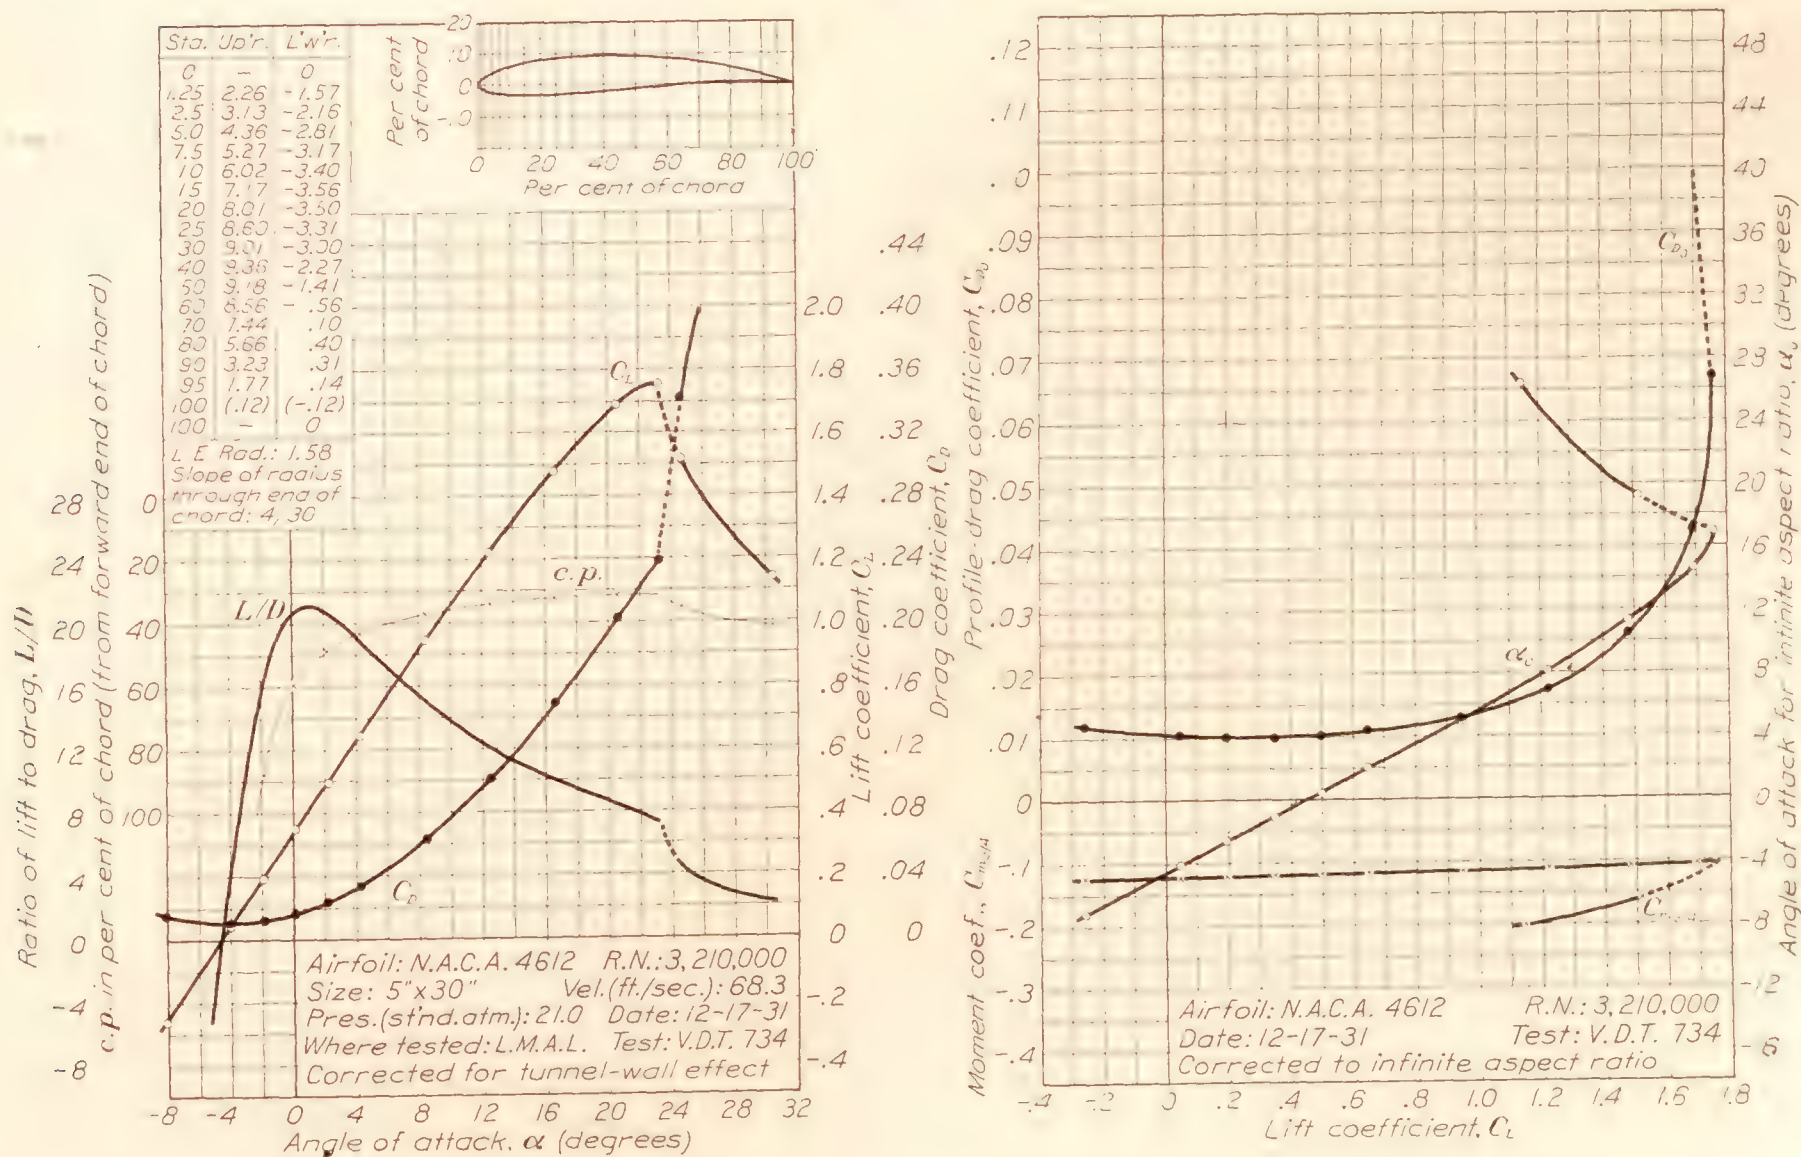 Sta. Up'r. L'w'r.
0 – 0
1.25 2.26 -1.57
2.5 3.13 -2.16
5.0 4.36 -2.81
7.5 5.27 -3.17
10 6.02 -3.40
15 7.17 -3.56
20 8.01 -3.50
25 8.60 -3.31
30 9.01 -3.00
40 9.36 -2.27
50 9.18 -1.41
60 8.56 - .56
70 7.44 .10
80 5.66 .40
90 3.23 .31
95 1.77 .14
100 (.12) (-.12)
100 – 0
L.E. Rad.: 1.58
Slope of radius
through end of
chord: 4/30
Per cent
of chord
20
10
0
-10
0 20 40 60 80 100
Per cent of chord
Ratio of lift to drag, L/D
28
24
20
16
12
8
4
0
-4
-8
c.p. in per cent of chord (from forward end of chord)
0
20
40
60
80
100
L/D
c.p.
C_L
C_D
2.0
1.8
1.6
1.4
1.2
1.0
.8
.6
.4
.2
0
-.2
-.4
Lift coefficient, C_L
.44
.40
.36
.32
.28
.24
.20
.16
.12
.08
.04
0
Drag coefficient, C_D
Airfoil: N.A.C.A. 4612 R.N.: 3,210,000
Size: 5"x30" Vel.(ft./sec.): 68.3
Pres.(st'nd.atm.): 21.0 Date: 12-17-31
Where tested: L.M.A.L. Test: V.D.T. 734
Corrected for tunnel-wall effect
-8 -4 0 4 8 12 16 20 24 28 32
Angle of attack, α (degrees)
Profile-drag coefficient, C_D0
.12
.11
.10
.09
.08
.07
.06
.05
.04
.03
.02
.01
0
Moment coef., C_mc/4
-.1
-.2
-.3
-.4
C_D0
α₀
C_mc/4
48
44
40
36
32
28
24
20
16
12
8
4
0
-4
-8
-12
Angle of attack for infinite aspect ratio, α₀ (degrees)
Airfoil: N.A.C.A. 4612 R.N.: 3,210,000
Date: 12-17-31 Test: V.D.T. 734
Corrected to infinite aspect ratio
-.4 -.2 0 .2 .4 .6 .8 1.0 1.2 1.4 1.6 1.8
Lift coefficient, C_L